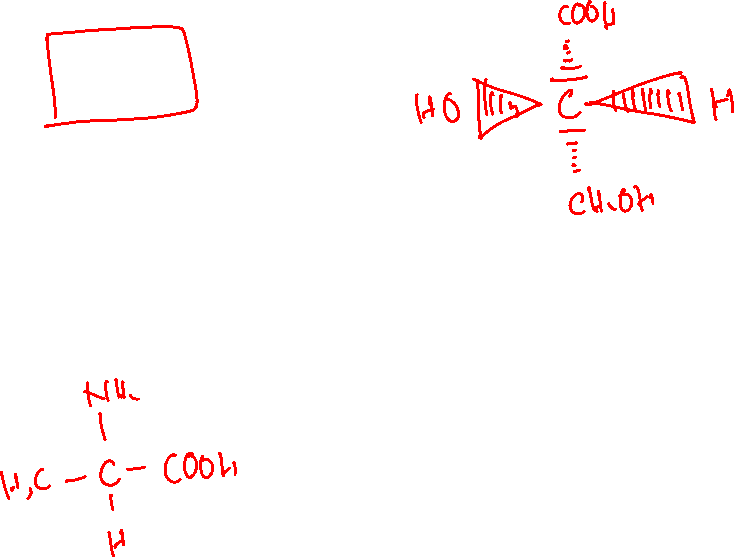 COOH
HO C H
CH₂OH
NH₂
H₃C - C - COOH
H